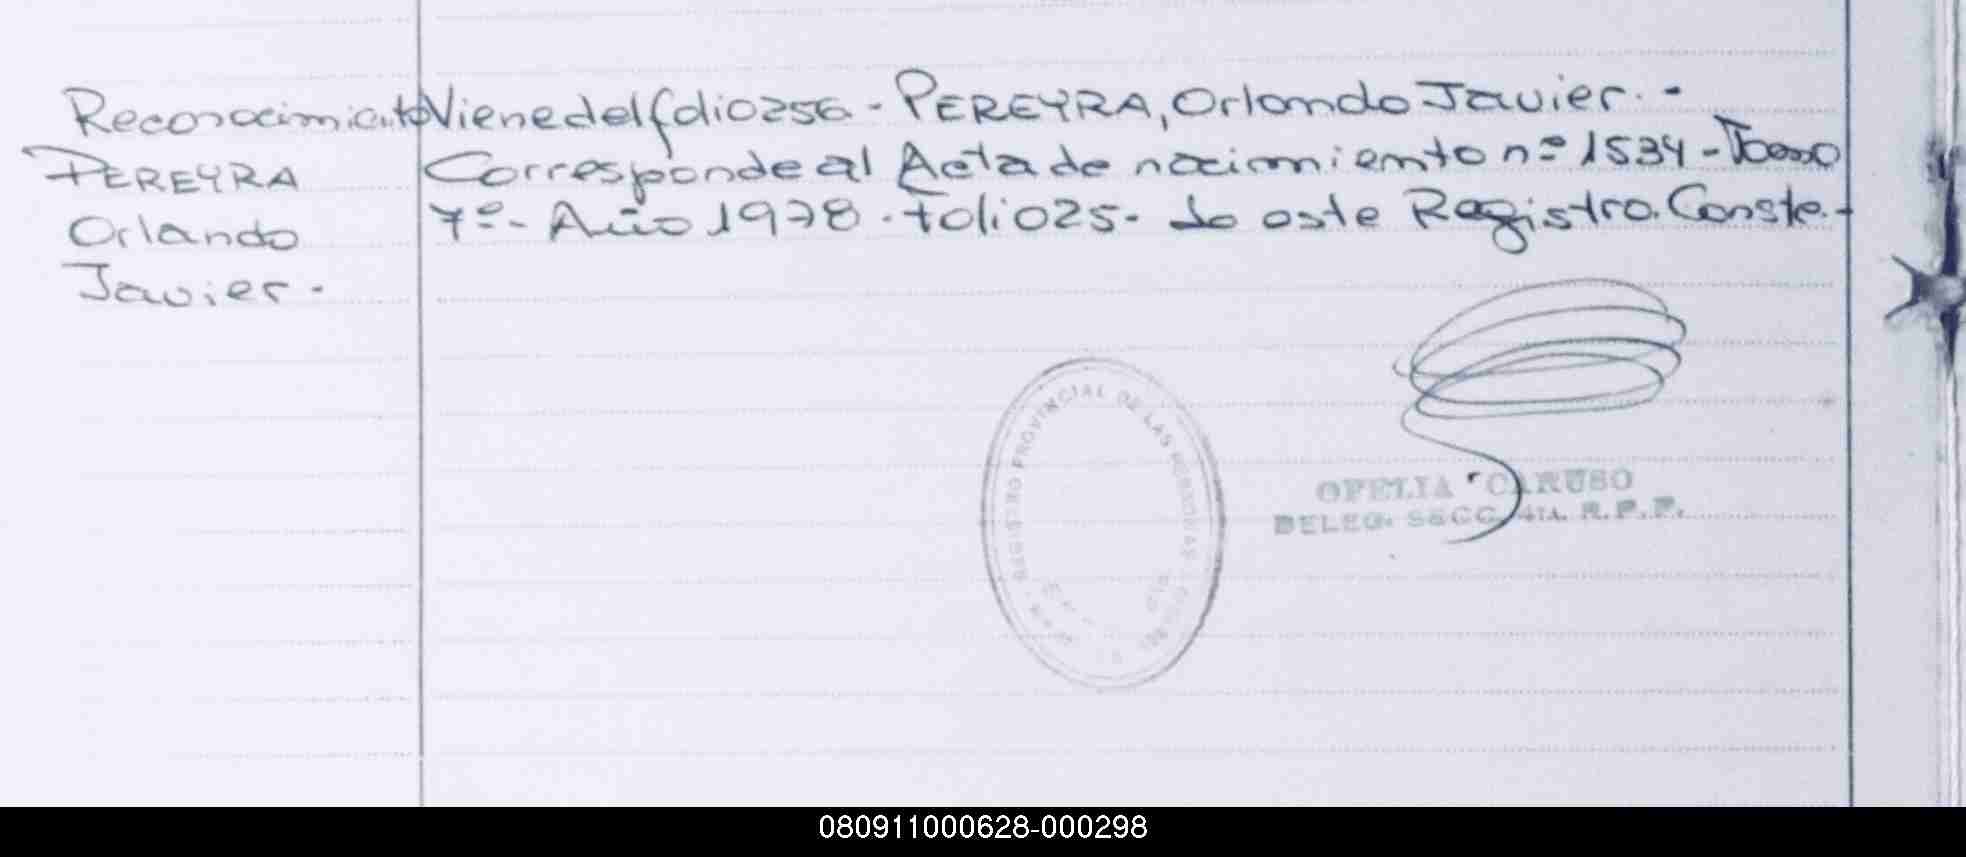 Reconocimiento
PEREYRA
Orlando
Javier.
Viene del folio 256 - PEREYRA, Orlando Javier. -
Corresponde al Acta de nacimiento nº 1534 - Tomo
7º - Año 1978 - Folio 25 - de este Registro. Conste. -
REGISTRO PROVINCIAL DE LAS PERSONAS
OFELIA CARUSO
DELEG. SECC. 4TA. R.P.P.
080911000628-000298